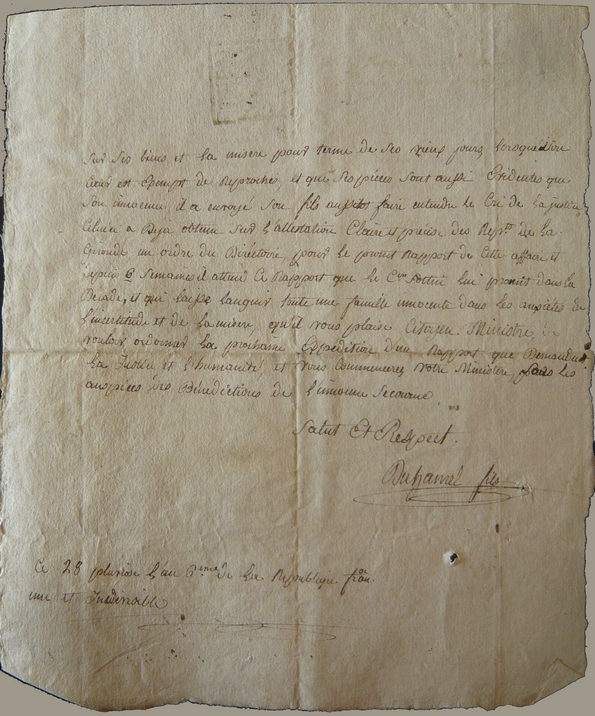 sur ses biens et la misere pour terme de ses vieux jours, lorsque son
cœur est Exempt de Reproches, et que ses pieces sont aussi Evidentes que
son innocence, il a envoyé son fils faire entendre le Cri de la justice
Celui ci a Deja obtenu sur l'attestation Claire et précise des Repr.ns de la
Gironde un ordre du Directoire, pour le prompt Rapport de Cette affaire et
depuis 6 Semaines il attend Ce Rapport que le C.en lui promet dans la
Decade, et qui laisse languir toute une famille innocente dans les anxietés de
l'incertitude et de la misere, qu'il vous plaise Citoyen Ministre de
vouloir ordonner la prochaine Expédition d'un Rapport que Demandent
La Justice et l'humanité et vous Commencerez votre Ministere sous les
auspices des Bénédictions de l'innocence Secourue.
Salut Et Respect.
Duhamel fils
Ce 28 pluviose l'an 6.eme de la Republique fran.
une et Indivisible